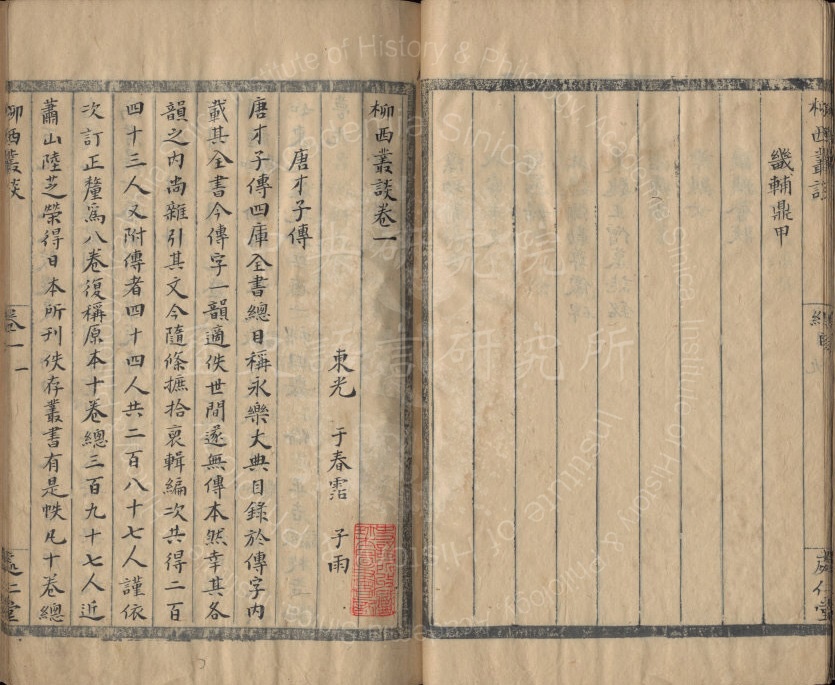 畿輔鼎甲
柳西叢談卷一
東光 于春霑 子雨
唐才子傳
唐才子傳四庫全書總目稱永樂大典目錄於傳字內
載其全書今傳字一韻適佚世間遂無傳本然幸其各
韻之內尚雜引其文今隨條摭拾裒輯編次共得二百
四十三人又附傳者四十四人共二百八十七人謹依
次訂正釐爲八卷復稱原本十卷總三百九十七人近
蕭山陸芝榮得日本所刊佚存叢書有是帙凡十卷總
柳西叢談
卷一
一